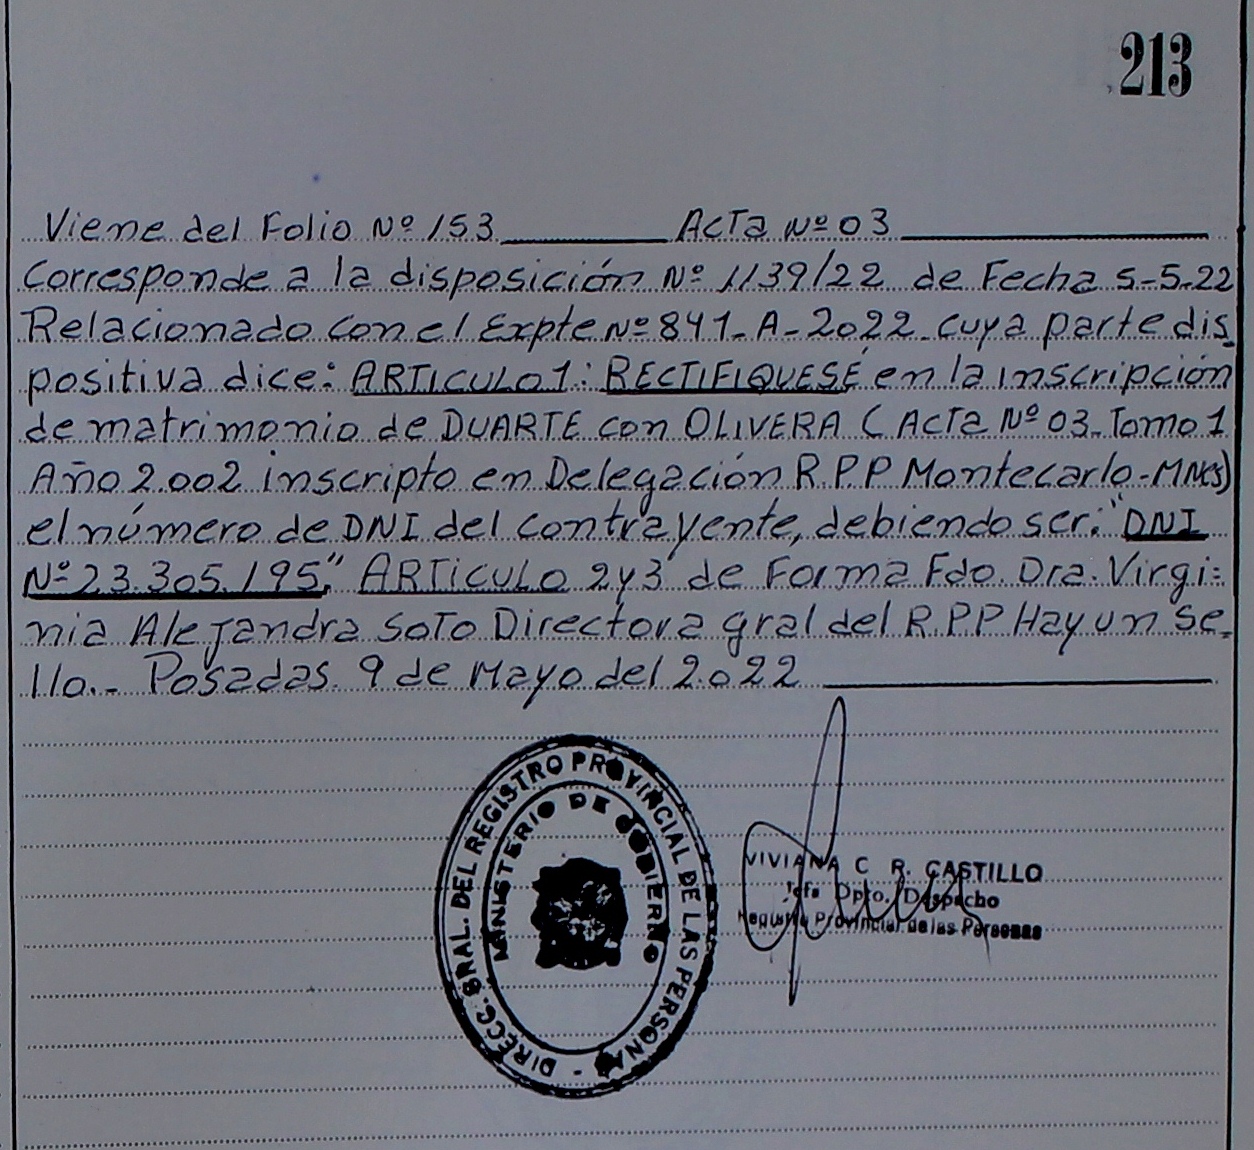 213
Viene del Folio Nº 153 Acta Nº 03
Corresponde a la disposición Nº 1139/22 de Fecha 5-5-22
Relacionado con el Expte Nº 841-A-2022 cuya parte dis_
positiva dice: ARTICULO 1: RECTIFIQUESÉ en la inscripción
de matrimonio de DUARTE con OLIVERA (Acta Nº 03-Tomo 1
Año 2.002 inscripto en Delegación R.P.P Montecarlo-MNES)
el número de DNI del contrayente, debiendo ser: "DNI
Nº 23.305.195" ARTICULO 2y3 de Forma Fdo. Dra. Virgi=
nia Alejandra Soto Directora gral del R.P.P Hay un Se_
llo.- Posadas 9 de Mayo del 2.022
DIRECC. GRAL. DEL REGISTRO PROVINCIAL DE LAS PERSONAS -
MINISTERIO DE GOBIERNO
VIVIANA C R. CASTILLO
Jefa Dpto. Despacho
Registro Provincial de las Personas